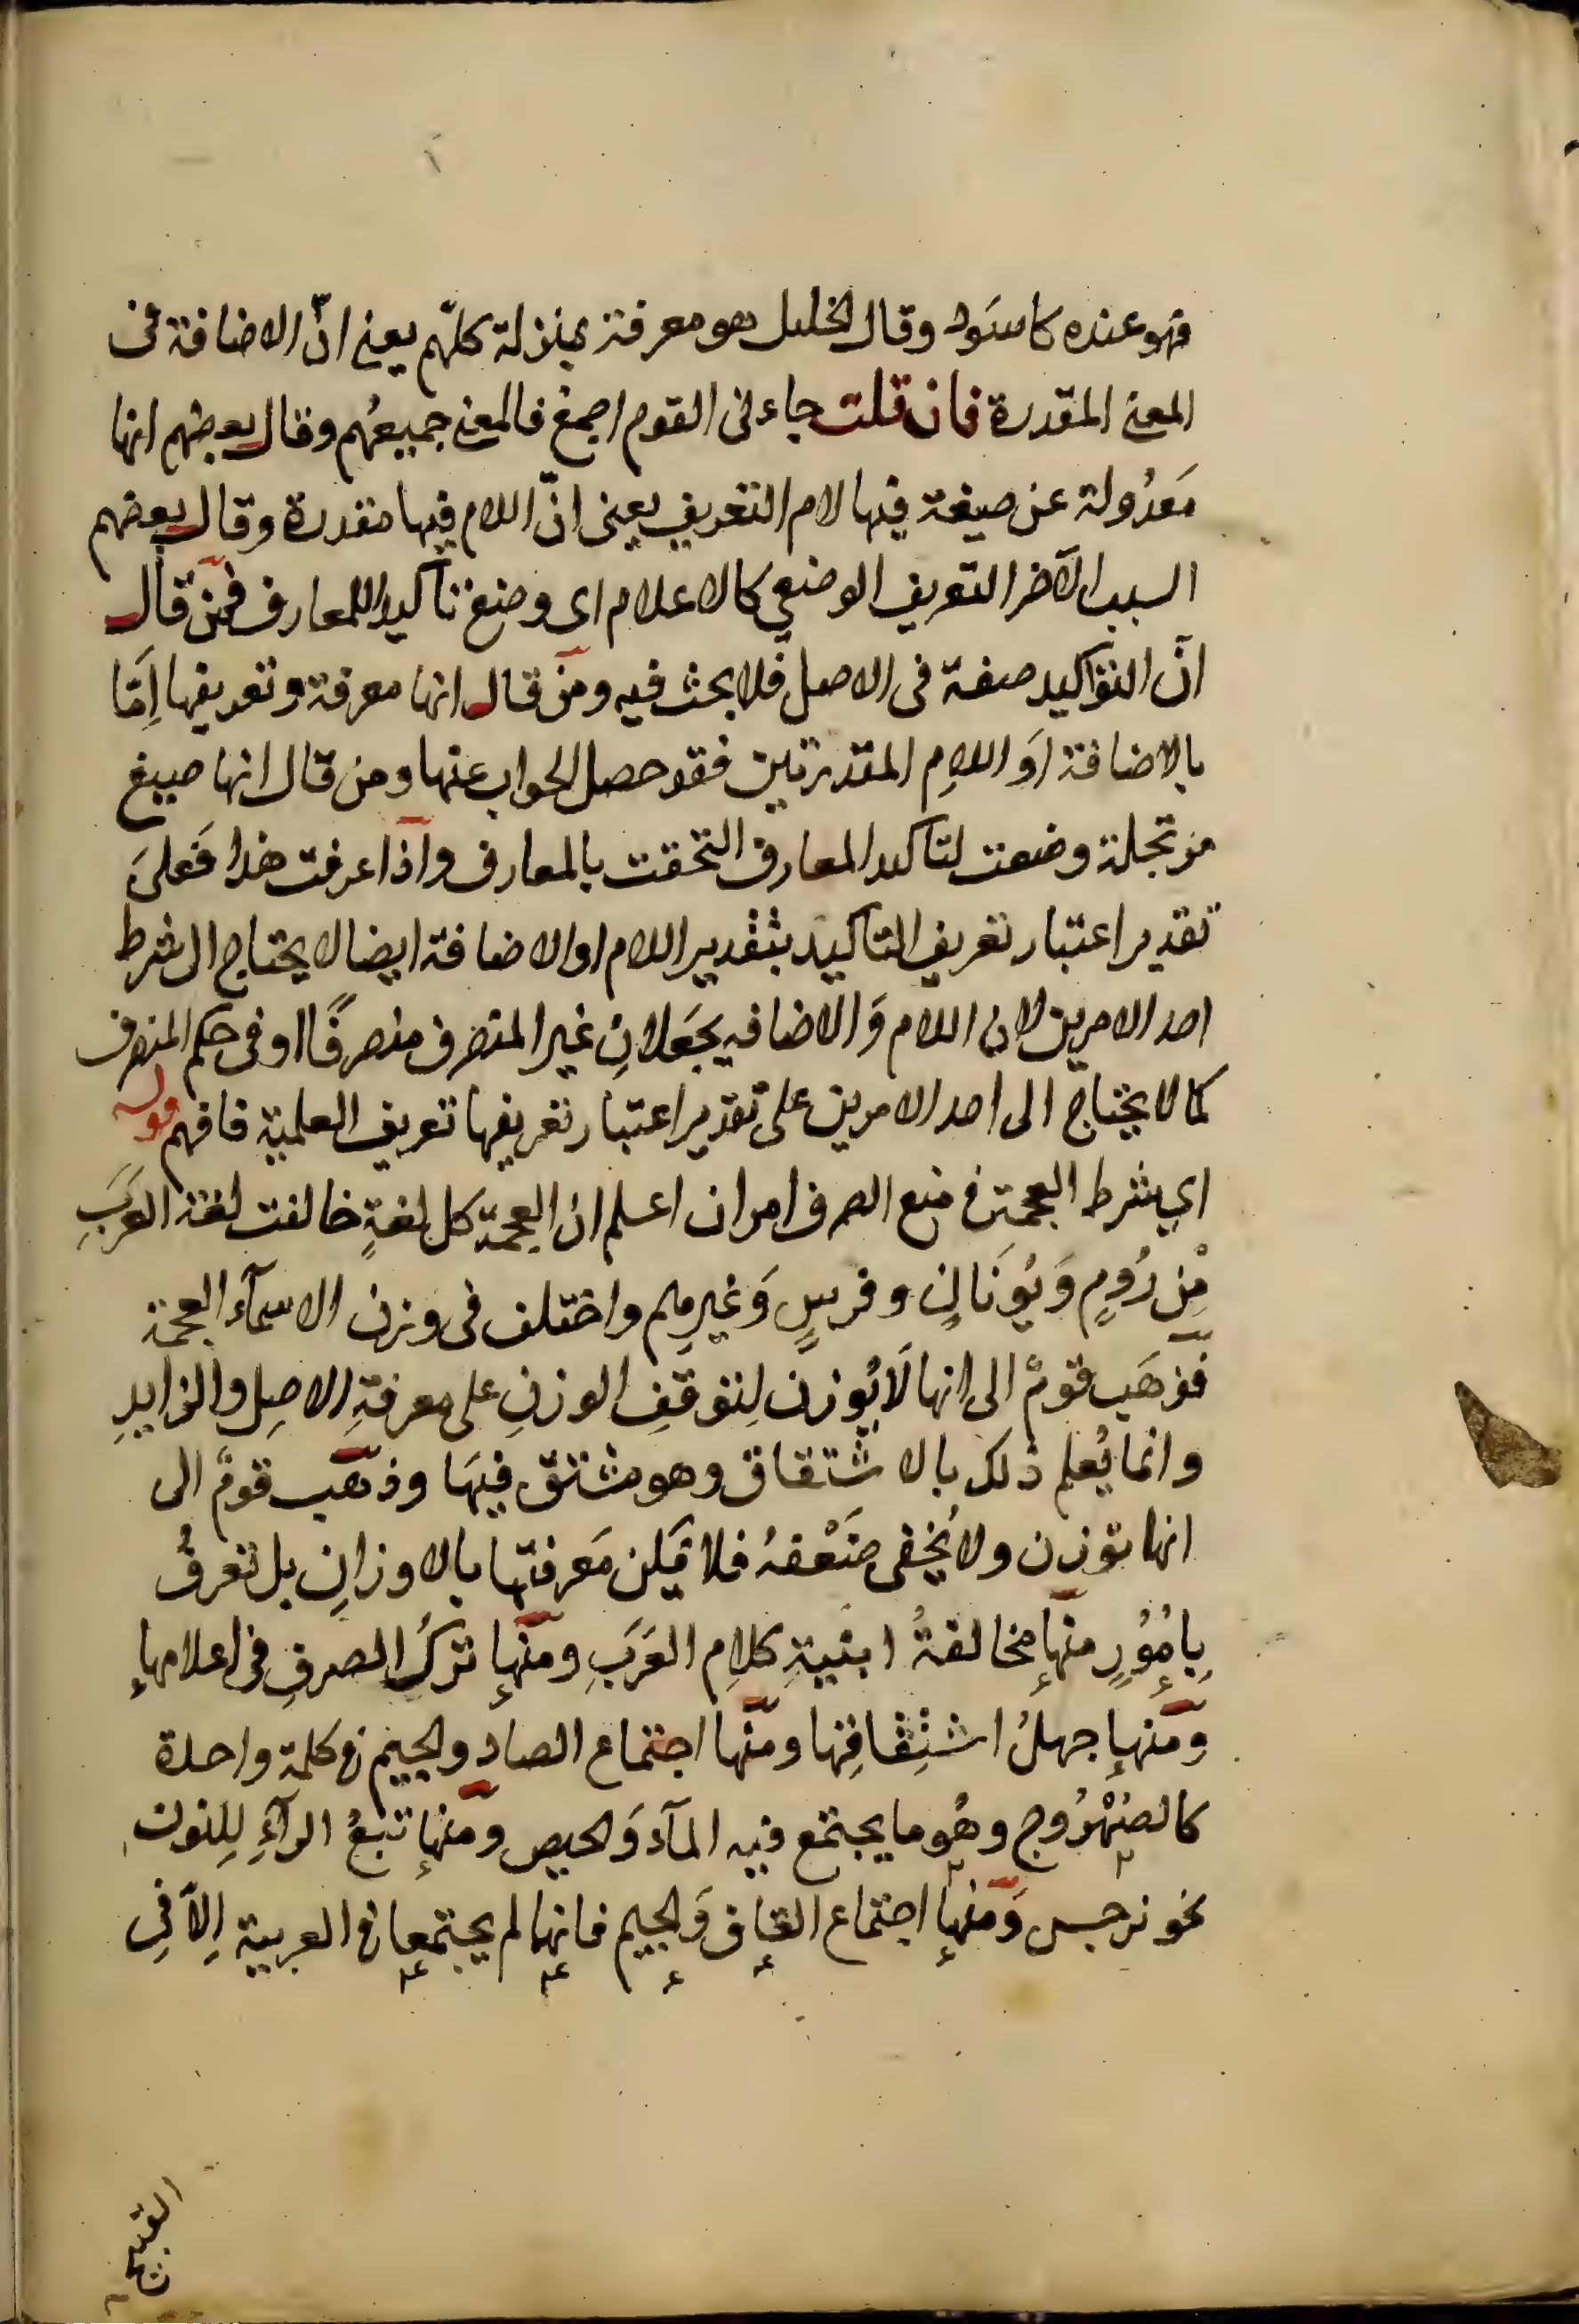 فهو عنده كاسود وقال الخليل هو معرفة بمنزلة كلّهم يعنى انّ الاضافة فى
المعنى المقدرة فان قلت جاءنى القوم اجمع فالمعنى جميعُهم وقال بعضهم انها
مَعدُولة عن صيغة فيها لام التعريف يعنى انّ اللام فيها مقدرة وقال بعضهم
السبب الآخر التعريف الوضعي كالاعلام اى وضع تأكيدا للمعارف فمن قال
انّ التواكيد صفة فى الاصل فلا بحث فيه ومن قال انها معرفة وتعريفها اِمَّا
بالاضافة اَو اللامِ المقدرتين فقد حصل الجواب عنها ومن قال انها صيغ
مرتجلة وضعت لتاكيد المعارف التحقت بالمعارف واذا عرفت هذا فَعلىَ
تقدير اعتبار تعريف التاكيد بتقدير اللام او الاضافة ايضا لا يحتاج الى شرط
احد الامرين لان اللام وَالاضافه يجَعلانِ غير المنصرف منصرفًا او فى حكم المنصرف
كما لا يحتاج الى احد الامرين على تقدير اعتبار تعريفها تعريف العلمية فافهم قوله
اي شرط العجمة فى منع الصرف امران اعلم ان العجمّة كل لغةٍ خالفت لغة العَرَبِ
مِّن رُومٍ وَيُونَانٍ وفرسٍ وَغيرِهم واختلف فى وزن الاسمآء العجمة
فذهَب قومٌ الى انها لَا يُوزن لِتوقفِ الوزنِ على معرفةِ الاصِل والزايدِ
وانما يُعلم ذلك بالاشتقاق وهو مشتق فيهَا وذهَب قومٌ الى
انها توزن ولا يُخفى ضَعْفهُ فلا يمَكن مَعرفتها بالاوزانِ بل تعرفُ
بِامُوُرٍ منها مخالفةُ ابنيةِ كلامِ العَرَبِ ومنها تركُ الصرفِ فى اعلامها
ومنها جهلُ اشتِقاقِها ومنها اجتماع الصادِ والجيم فى كلمة واحدة
كالصِهْرُوج وهُو ما يجتمع فيه المآء وَالجص ومنها تتبعُ الرآءِ لِلنون
نحو نرجس وَمنها اجتماع القاف وَالجيم فانهما لم يجتمعا فى العربية اِلّا فِى
القبج